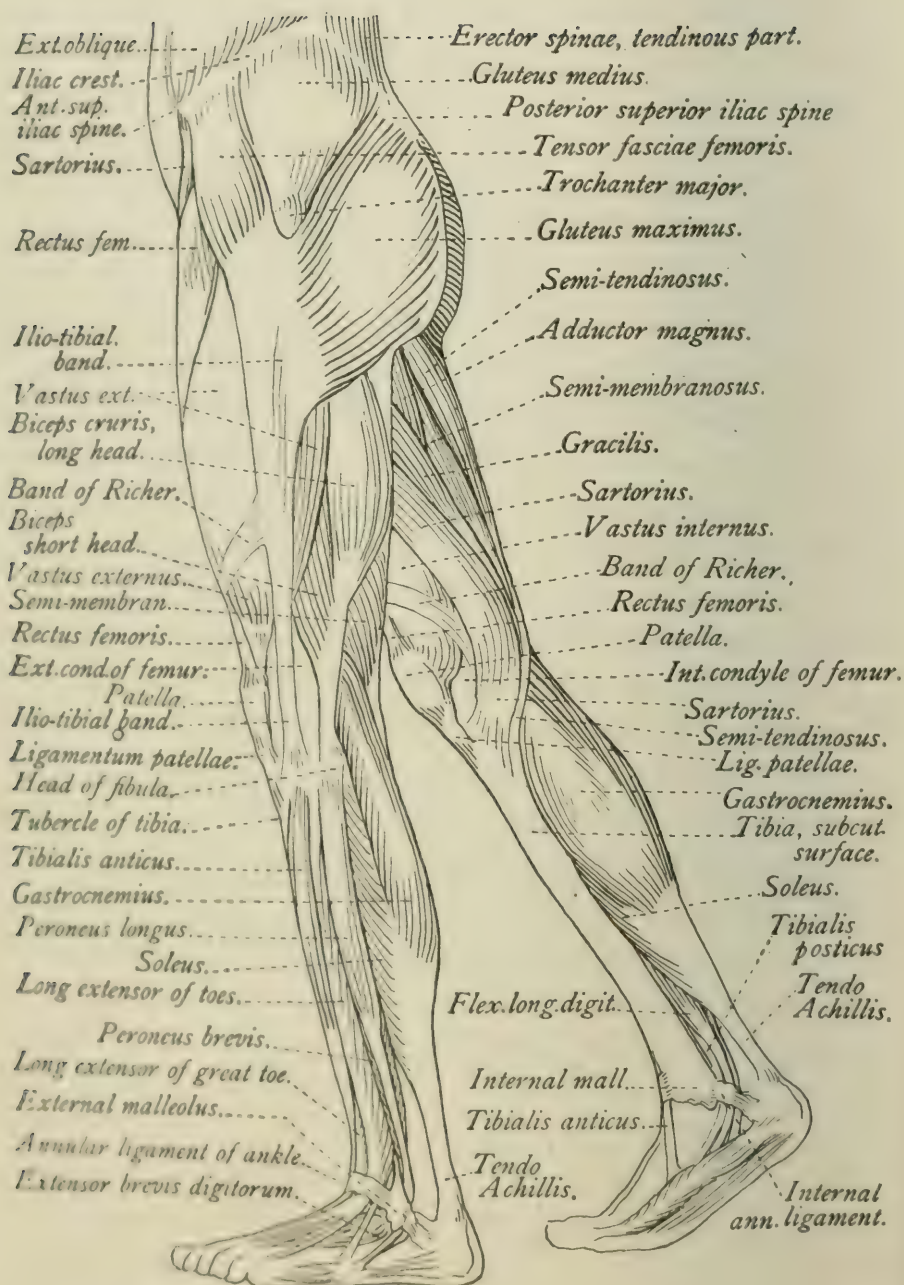 Ext. oblique.
Iliac crest.
Ant. sup.
iliac spine.
Sartorius.
Rectus fem.
Ilio-tibial.
band.
Vastus ext.
Biceps cruris,
long head.
Band of Richer.
Biceps
short head.
Vastus externus.
Semi-membran.
Rectus femoris.
Ext. cond. of femur.
Patella.
Ilio-tibial band.
Ligamentum patellae.
Head of fibula.
Tubercle of tibia.
Tibialis anticus.
Gastrocnemius.
Peroneus longus.
Soleus.
Long extensor of toes.
Peroneus brevis.
Long extensor of great toe.
External malleolus.
Annular ligament of ankle.
Extensor brevis digitorum.
Erector spinae, tendinous part.
Gluteus medius.
Posterior superior iliac spine
Tensor fasciae femoris.
Trochanter major.
Gluteus maximus.
Semi-tendinosus.
Adductor magnus.
Semi-membranosus.
Gracilis.
Sartorius.
Vastus internus.
Band of Richer.
Rectus femoris.
Patella.
Int. condyle of femur.
Sartorius.
Semi-tendinosus.
Lig. patellae.
Gastrocnemius.
Tibia, subcut.
surface.
Soleus.
Tibialis
posticus
Tendo
Achillis.
Flex. long. digit.
Internal mall.
Tibialis anticus.
Tendo
Achillis.
Internal
ann. ligament.